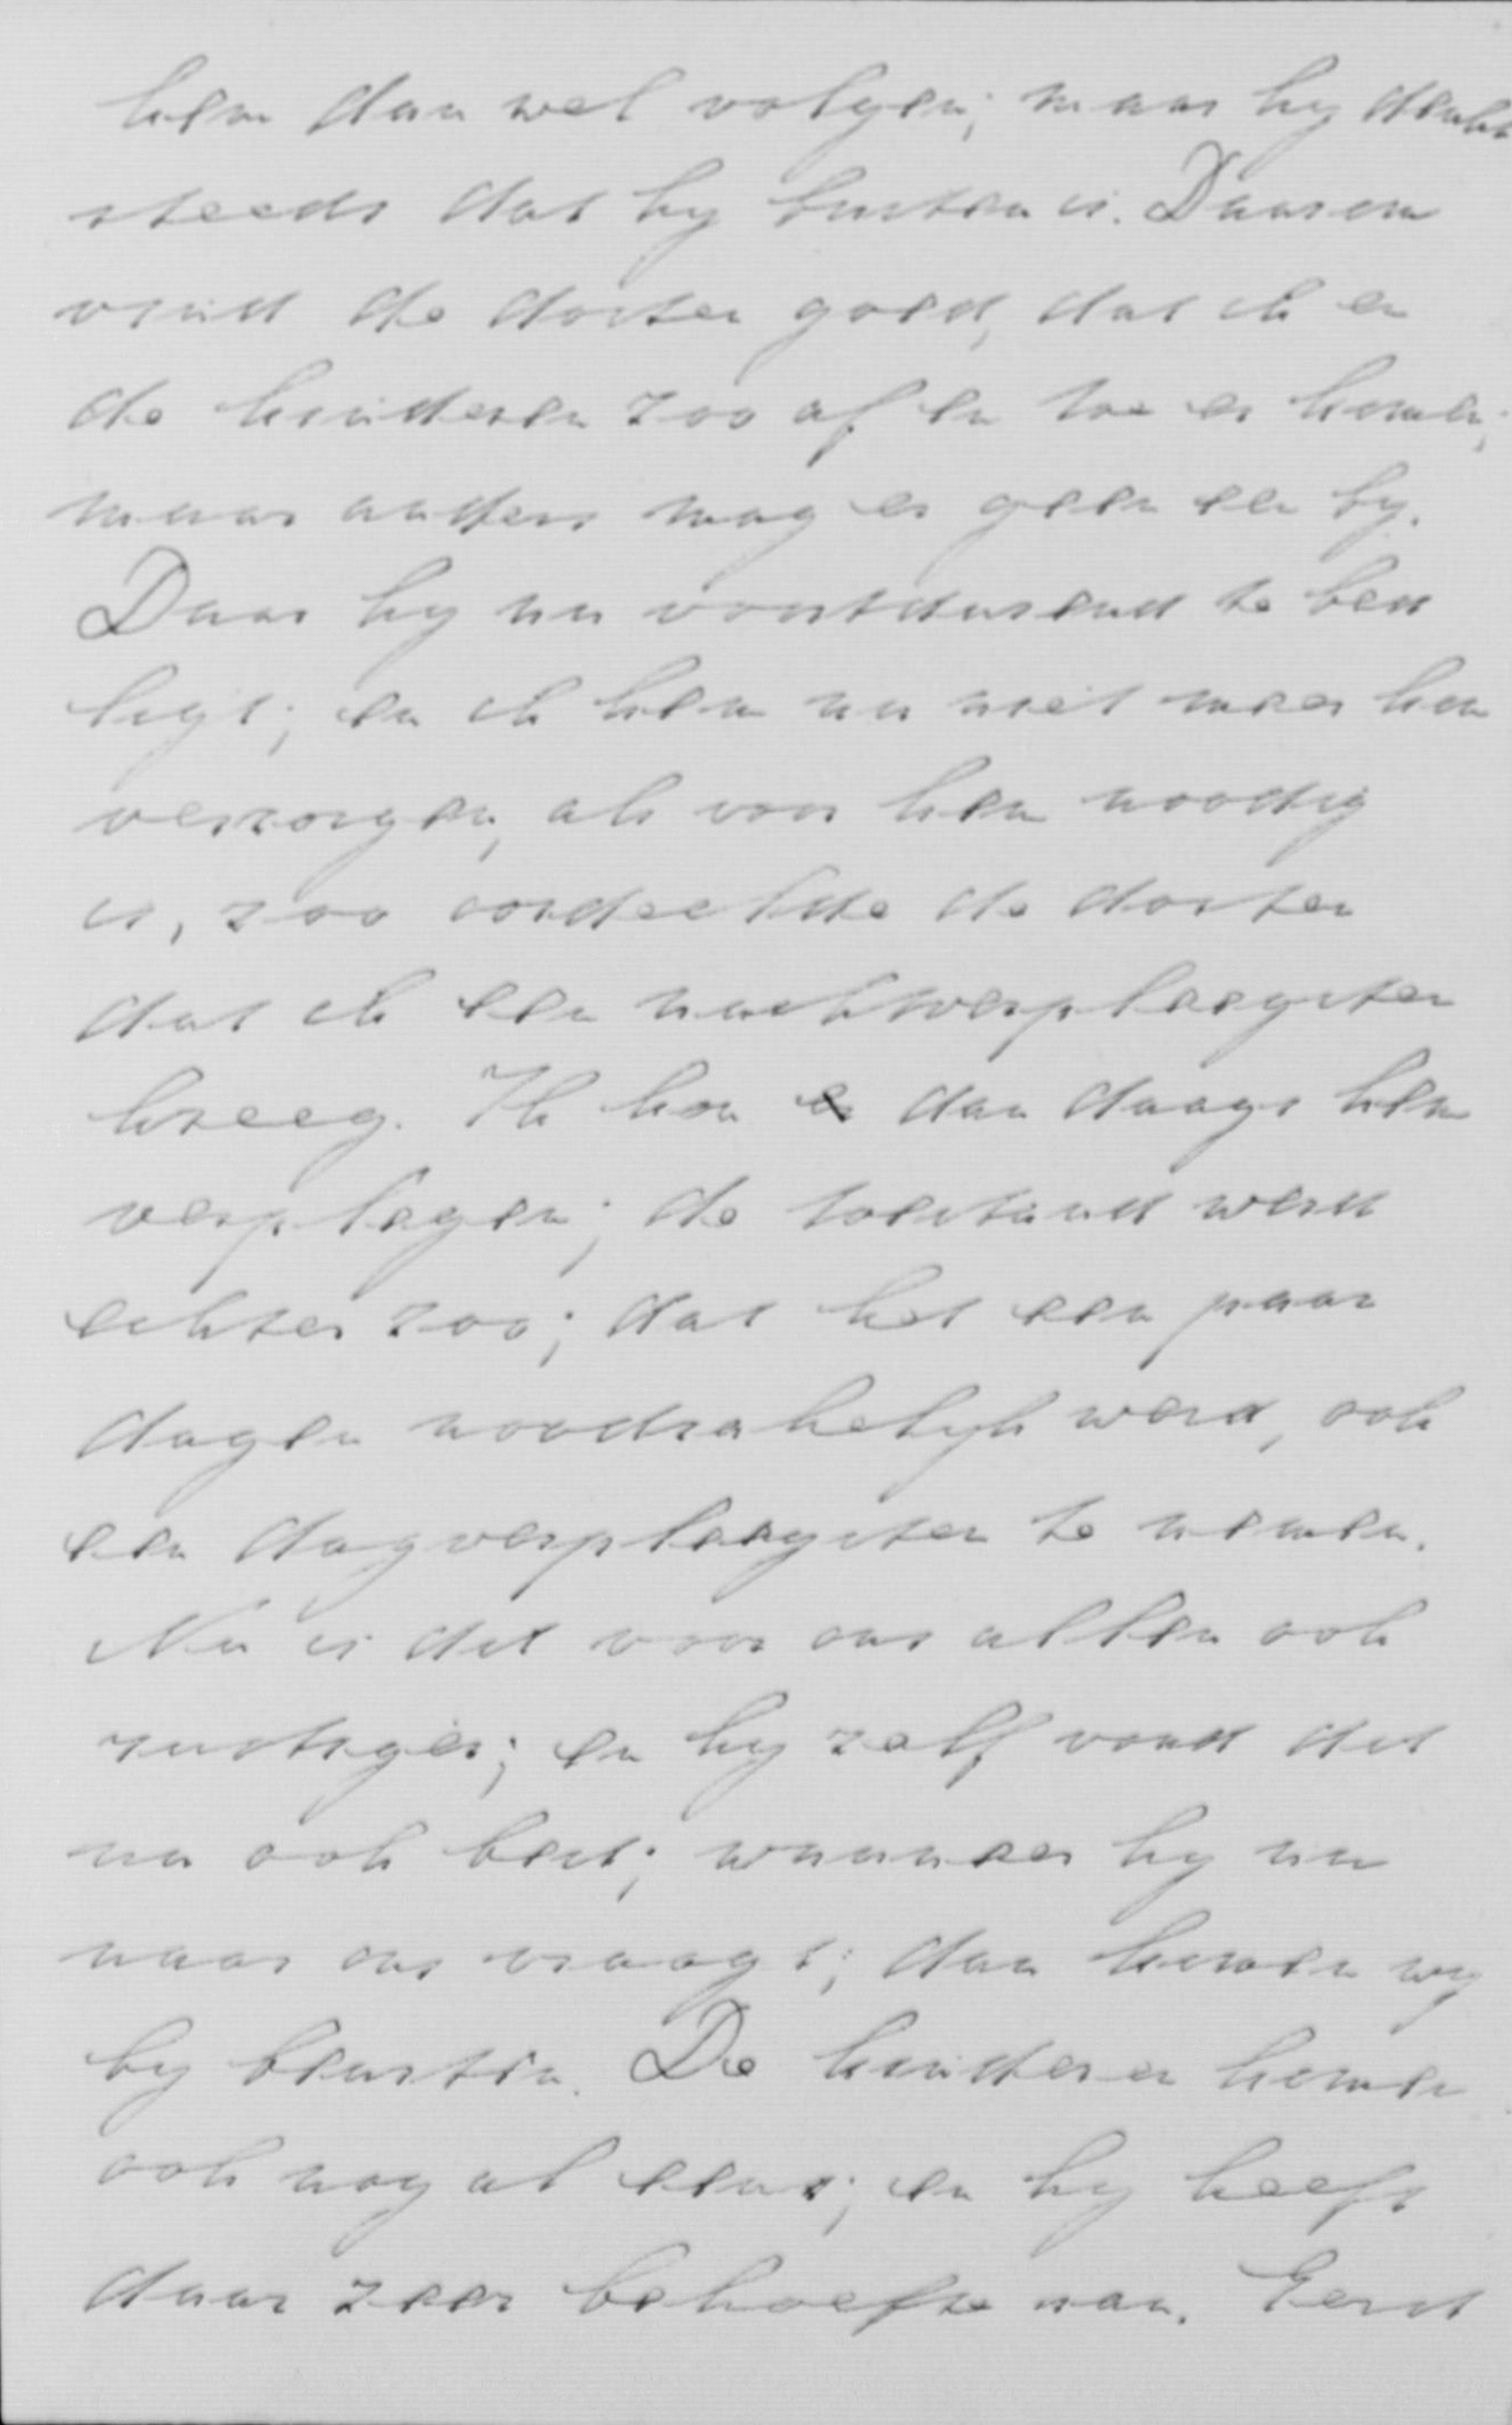 hem dan wel volgen; maar hy denkt
steeds dat hy buiten is. Daarom
vindt de dokter goed, dat ik en
de kinderen zoo af en toe er komen;
maar anders mag er geen een by.
Daar hy nu voortdurend te bed
ligt; en ik hem nu niet meer kon
verzorgen, als voor hem noodig
is, zoo oordeelde de dokter
dat ik een nachtverpleegster
kreeg. Ik kon dan daags hem
verplegen; de toestand werd
echter zoo; dat het een paar
dagen noodzakelyk werd, ook
een dagverpleegster te nemen.
Nu is dit voor ons allen ook
rustiger; en hy zelf vond dit
nu ook best; wanneer hy nu
naar ons vraagt; dan komen wy
by beurten. De kinderen komen
ook nog al eens; en hy heeft
daar zeer behoefte aan. Eerst